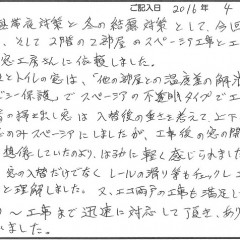 ご記入日 2016年 4
温対策と冬の結露対策として、今回
、そして2階の2部屋のスペーシア工事とエ
窓工房さんに依頼しました。
とトイレの窓は、「他の部屋との温度差の解消
シー保護」でスペーシアの不透明タイプで工
の掃き出し窓は入替後の重さを考えて、上下
のみスペーシアにしましたが、工事後の窓の開
想像していたのより、はるかに軽く感じられました
窓の入替だけでなくレールの滑り等もチェックし
と理解しました。又、エコ雨戸の工事も満足し
〜工事まで迅速に対応して頂き、あり
しました。